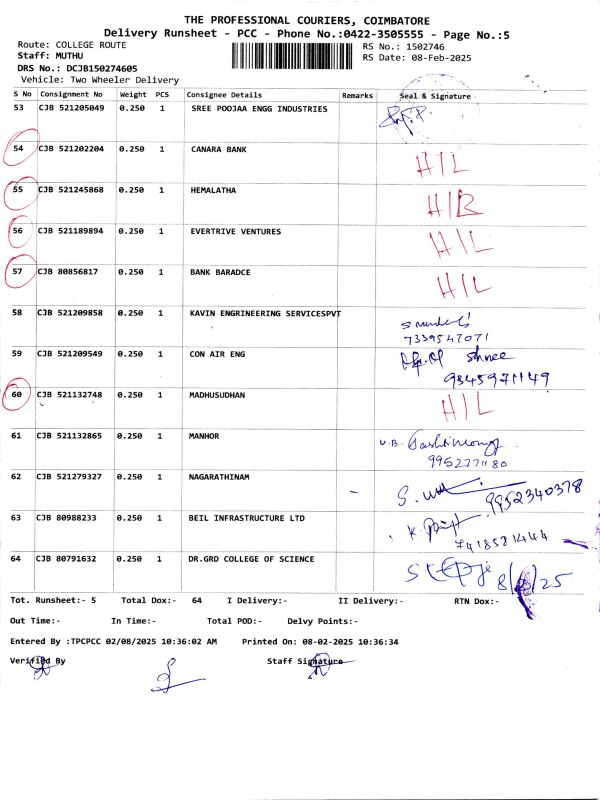 THE PROFESSIONAL COURIERS, COIMBATORE
Delivery Runsheet - PCC - Phone No.:0422-3505555 - Page No.:5
Route: COLLEGE ROUTE RS No.: 1502746
Staff: MUTHU RS Date: 08-Feb-2025
DRS No.: DCJB150274605
Vehicle: Two Wheeler Delivery
S No Consignment No Weight PCS Consignee Details Remarks Seal & Signature
53 CJB 521205049 0.250 1 SREE POOJAA ENGG INDUSTRIES
54 CJB 521202204 0.250 1 CANARA BANK H/L
55 CJB 521245868 0.250 1 HEMALATHA H/B
56 CJB 521189894 0.250 1 EVERTRIVE VENTURES H/L
57 CJB 80856817 0.250 1 BANK BARADCE H/L
58 CJB 521209858 0.250 1 KAVIN ENGRINEERING SERVICESPVT
7339547071
59 CJB 521209549 0.250 1 CON AIR ENG shree
9345971149
60 CJB 521132748 0.250 1 MADHUSUDHAN H/L
61 CJB 521132865 0.250 1 MANHOR U.B.
9952771180
62 CJB 521279327 0.250 1 NAGARATHINAM 9952340378
63 CJB 80988233 0.250 1 BEIL INFRASTRUCTURE LTD K.
7418521444
64 CJB 80791632 0.250 1 DR.GRD COLLEGE OF SCIENCE
Tot. Runsheet:- 5 Total Dox:- 64 I Delivery:- II Delivery:- RTN Dox:-
Out Time:- In Time:- Total POD:- Delvy Points:-
Entered By :TPCPCC 02/08/2025 10:36:02 AM Printed On: 08-02-2025 10:36:34
Verified By Staff Signature